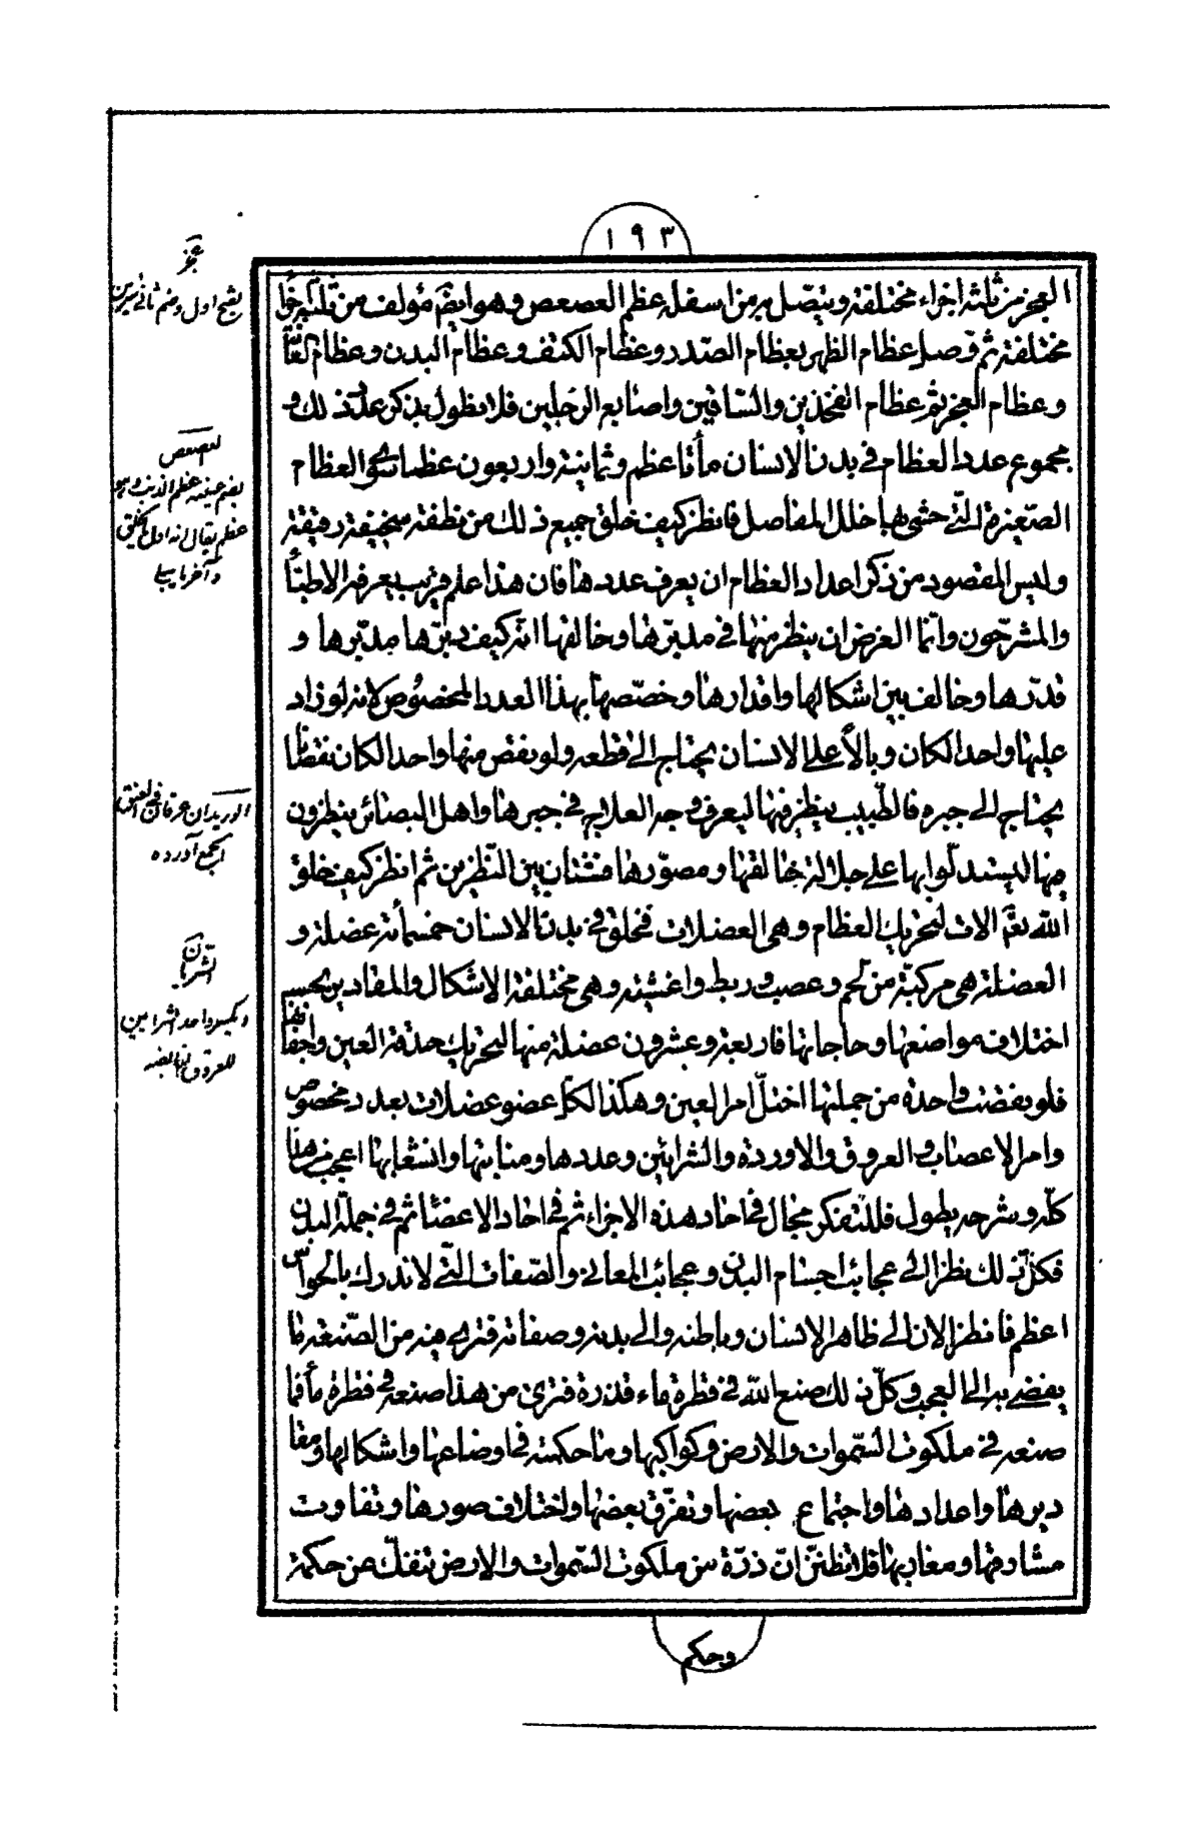 ١٩٣
العجز من ثلثة اجزاء مختلفة ويتصل به من اسفله عظم العصعص وهو ايضا مؤلف من ثلثة اجزا
مختلفة ثم وصل عظام الظهر بعظام الصّدر وعظام الكتف وعظام اليدين وعظام العانة
وعظام العجز ثم عظام الفخذين والسّاقين واصابع الرجلين فلا نطول بذكر عدد ذلك و
مجموع عدد العظام في بدن الانسان مأتا عظم وثمانية واربعون عظما سوى العظام
الصّغيرة الّتي حشى بها خلل المفاصل فانظر كيف خلق جميع ذلك من نطفة سخيفة رقيقة
وليس المقصود من ذكر اعداد العظام ان يعرف عددها فان هذا علم قريب يعرفه الاطبّاء
والمشرّحون وانّما الغرض ان ينظر منها في مدبّرها وخالقها انه كيف دبّرها مدبّرها و
قدّرها وخالف بين اشكالها واقدارها وخصّصها بهذا العدد المخصوص لانه لو زاد
عليها واحد الكان وبالاً على الانسان يحتاج الى قطعه ولو نقص منها واحد الكان نقصانا
يحتاج الى جبره فالطّبيب ينظر فيها ليعرف وجه العلاج في جبرها واهل البصائر ينظرون
فيها ليستدلّوا بها على جلالة خالقها ومصوّرها فشتان بين النّظرين ثم انظر كيف خلق
اللّه تعا الات لتحريك العظام وهى العضلات فخلق في بدن الانسان خمسمأئة عضلة و
العضلة هى مركبّة من لحم وعصب وربط واغشية وهى مختلفة الاشكال والمقادير بحسب
اختلاف مواضعها وحاجاتها فاربعة وعشرون عضلة منها لتحريك حدقة العين واجفانها
فلو نقصت واحدة من جملتها اختلّ امر العين وهكذا لكلّ عضو عضلات بعدد مخصوص
وامر الاعصاب والعروق والاوردة والشرائين وعددها ومنابتها وانشعابها اعجب من هذا
كلّه وشرحه يطول فللتفكر مجال في احاد هذه الاجزاء ثم في احاد الاعضاء ثم في جملة البدن
فكلّ ذلك نظر الى عجائب اجسام البدن وعجائب المعاني والصّفات الّتي لا تدرك بالحواسّ
اعظم فانظر الان الى ظاهر الانسان وباطنه والى بدنه وصفاته فترى فيه من الصّنعة ما
يفضى به الى العجب وكلّ ذلك صنع اللّه في قطرة ماء قذرة فترى من هذا صنعه في قطرة ماء فما
صنعه في ملكوت السّموات والارض وكواكبها وما حكمته في اوضاعها واشكالها ومقا
ديرها واعدادها واجتماع بعضها وتفرّق بعضها واختلاف صورها وتفاوت
مشارقها ومغاربها فلا تظننّ انّ ذرّة من ملكوت السّموات والارض تنفكّ عن حكمة
وحكم
عجز
بفتح اول وضم ثانى سرين
العصعص
بضم عينيه عظم الذنب وهو
عظم يقال انه اول ما يخلق
وآخر ما يبلى
الوريدان عرقان فى العنق
مجمع آورده
الشريان
وبكسر واحد الشرايين
للعروق النابضة